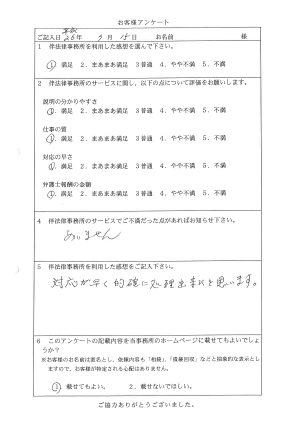 お客様アンケート
ご記入日 平成26年 9月 15日 お名前 様
1 伴法律事務所を利用した感想を選んで下さい。
①. 満足 2. まあまあ満足 3 普通 4. やや不満 5. 不満
2 伴法律事務所のサービスに関し、以下の点について評価をお願いします。
説明の分かりやすさ
①. 満足 2. まあまあ満足 3 普通 4. やや不満 5. 不満
仕事の質
①. 満足 2. まあまあ満足 3 普通 4. やや不満 5. 不満
対応の早さ
①. 満足 2. まあまあ満足 3 普通 4. やや不満 5. 不満
弁護士報酬の金額
①. 満足 2. まあまあ満足 3 普通 4. やや不満 5. 不満
4 伴法律事務所のサービスでご不満だった点があればお知らせ下さい。
ありません
5 伴法律事務所を利用した感想をご記入下さい。
対応が早く的確に処理出来たと思います。
6 このアンケートの記載内容を当事務所のホームページに載せてもよいでしょ
うか?
※お客様のお名前は匿名とし、依頼内容も「相続」、「債権回収」などと抽象的な表示とし
ますので、お客様が特定される心配はありません。
①. 載せてもよい。 2. 載せないでほしい。
ご協力ありがとうございました。